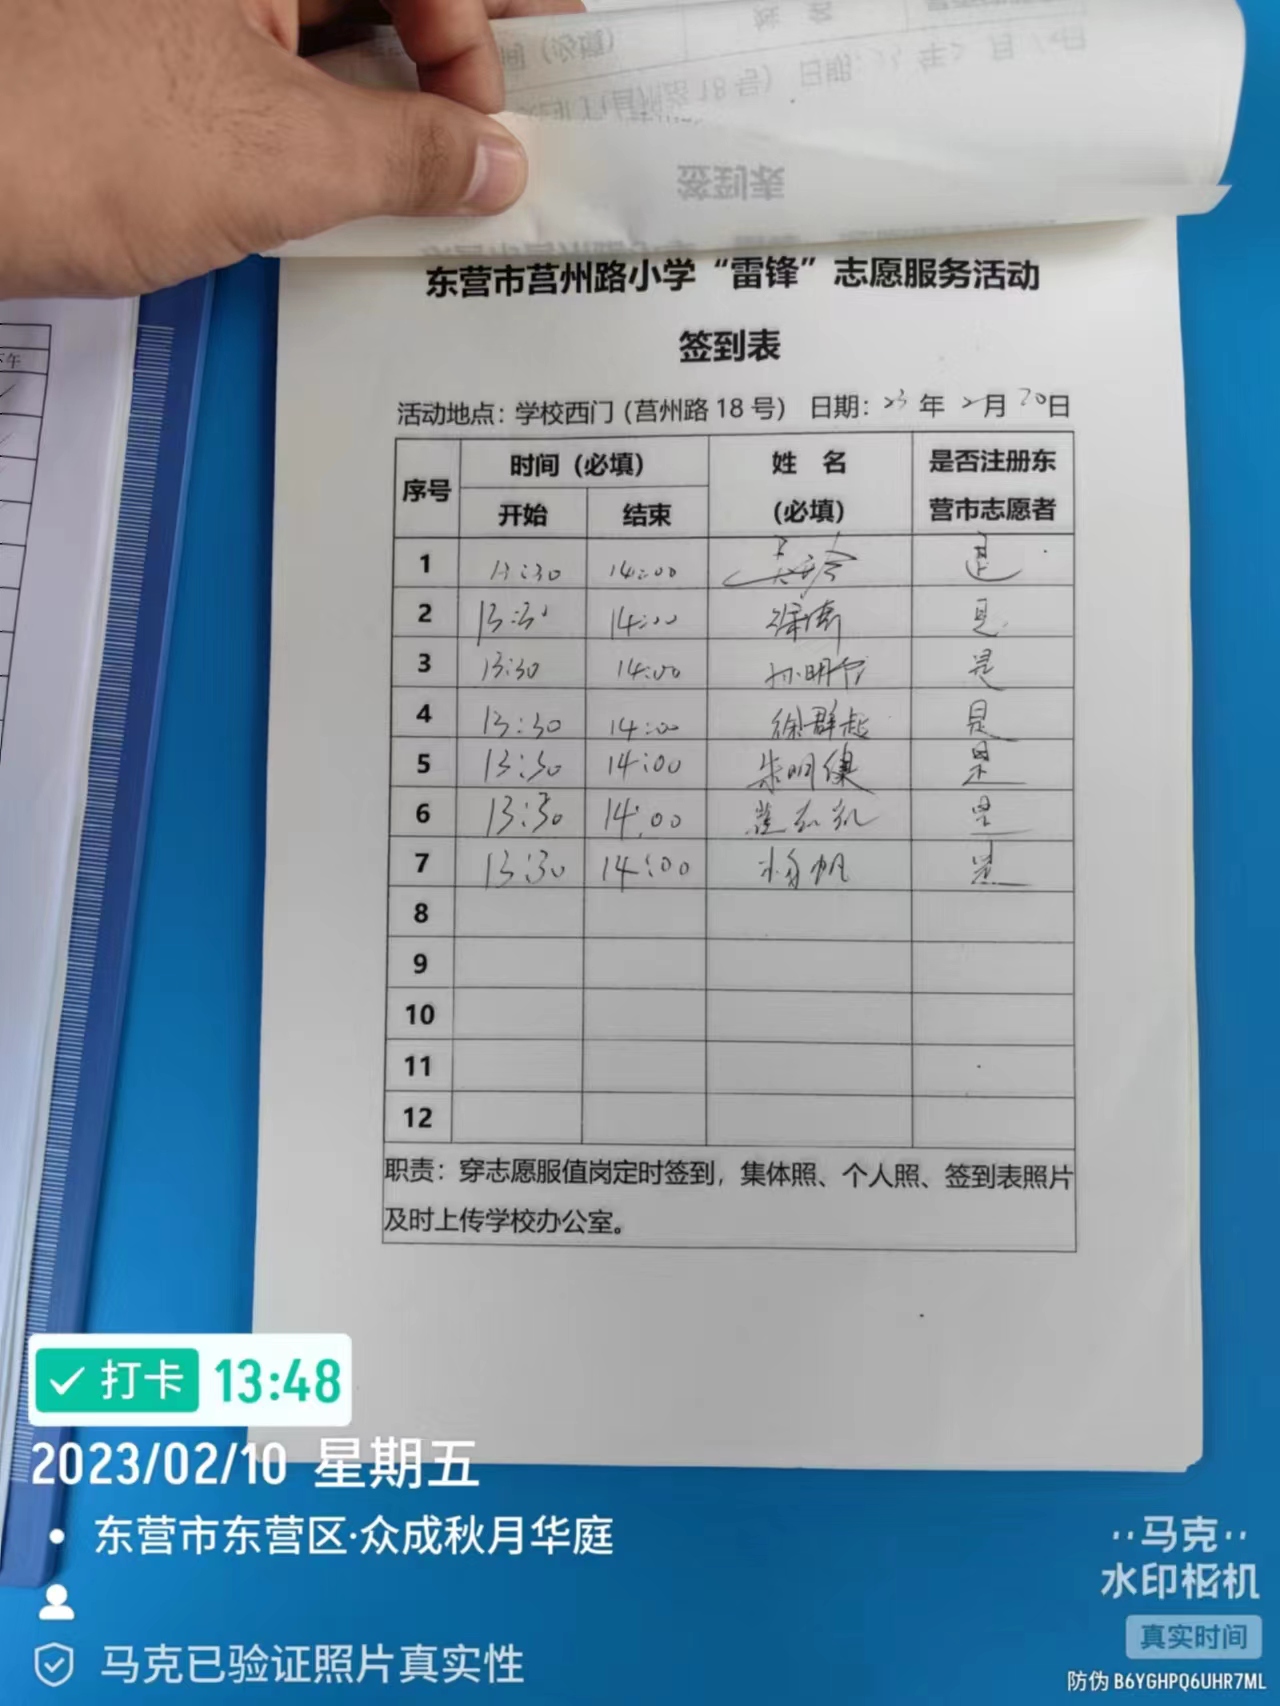 签到表
东营市莒州路小学“雷锋”志愿服务活动
签到表
活动地点：学校西门（莒州路18号） 日期：23年2月10日
序号 时间（必填） 姓 名（必填） 是否注册东营市志愿者
开始 结束
1 13:30 14:00 是
2 13:30 14:00 是
3 13:30 14:00 孙明 是
4 13:30 14:00 徐群起 是
5 13:30 14:00 朱明 是
6 13:30 14:00 是
7 13:30 14:00 杨帆 是
8
9
10
11
12
职责：穿志愿服值岗定时签到，集体照、个人照、签到表照片
及时上传学校办公室。
打卡 13:48
2023/02/10 星期五
东营市东营区·众成秋月华庭
马克已验证照片真实性
马克
水印相机
真实时间
防伪 B6YGHPQ6UHR7ML